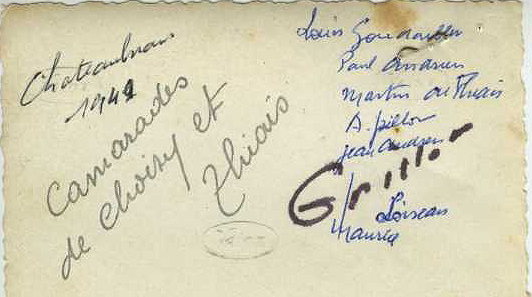 Chateaubriant
1941
Camarades
de Choisy et
Thiais
Louis
Paul Andrieu
Martin de Thiais
A. pillon
jean Andrieu
Grillot
Loiseau
Maurice